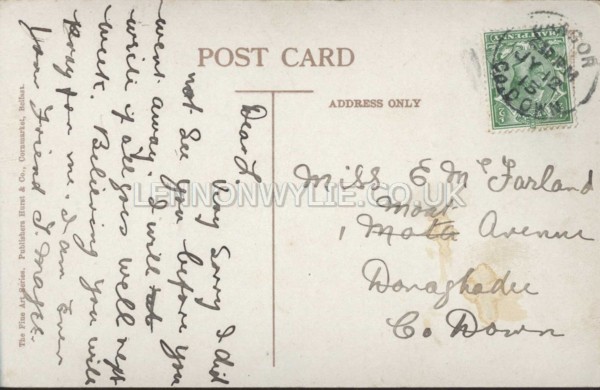 POST CARD
ADDRESS ONLY
The Fine Art Series. Publishers Hurst & Co., Cornmarket, Belfast.
Dear L.
Very Sorry I did
not See you before you
went away. I will not
write if all goes well next
week. Believing you will
pray for me. I am Ever
your Friend J. Magee.
Miss E McFarland
Moat
1 Mota Avenue
Donaghadee
Co Down
BANGOR
JY 12
15
CO. DOWN
HALFPENNY
LENNONWYLIE.CO.UK